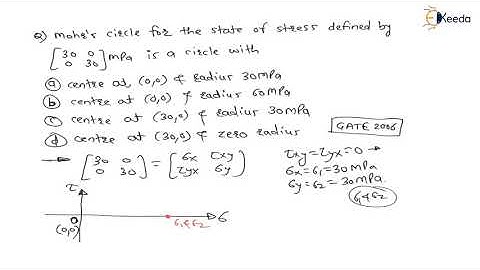 Keeda
Q) Mohr's circle for the state of stress defined by
[30 0
0 30] mPa is a circle with
(a) centre at (0,0) & radius 30mPa
(b) centre at (0,0) & radius 60mPa
(c) centre at (30,0) & radius 30mPa
(d) centre at (30,0) & zero radius
GATE 2006
→ [30 0
0 30] = [σx τxy
τyx σy]
τxy=τyx=0 →
σx=σ1=30mPa
σy=σ2=30mPa.
σ1&σ2
τ
σ
(0,0)
σ1&σ2